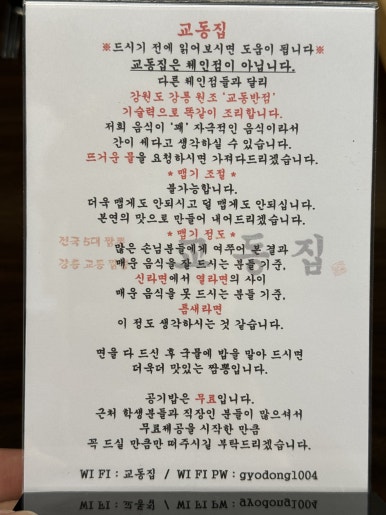 교동집
※드시기 전에 읽어보시면 도움이 됩니다※
교동집은 체인점이 아닙니다.
다른 체인점들과 달리
강원도 강릉 원조 '교동반점'
기술력으로 똑같이 조리합니다.
저희 음식이 '꽤' 자극적인 음식이라서
간이 세다고 생각하실 수 있습니다.
뜨거운 물을 요청하시면 가져다드리겠습니다.
* 맵기 조절 *
불가능합니다.
더욱 맵게도 안되시고 덜 맵게도 안되십니다.
본연의 맛으로 만들어 내어드리겠습니다.
* 맵기 정도 *
많은 손님분들에게 여쭈어 본 결과
전국 5대 짬뽕
강릉 교동
교동집
매운 음식을 잘 드시는 분들 기준,
신라면에서 열라면의 사이
매운 음식을 못 드시는 분들 기준,
틈새라면
이 정도 생각하시는 것 같습니다.
면을 다 드신 후 국물에 밥을 말아 드시면
더욱더 맛있는 짬뽕입니다.
공기밥은 무료입니다.
근처 학생분들과 직장인 분들이 많으셔서
무료제공을 시작한 만큼
꼭 드실 만큼만 떠주시길 부탁드리겠습니다.
WI FI : 교동집 / WI FI PW : gyodong1004